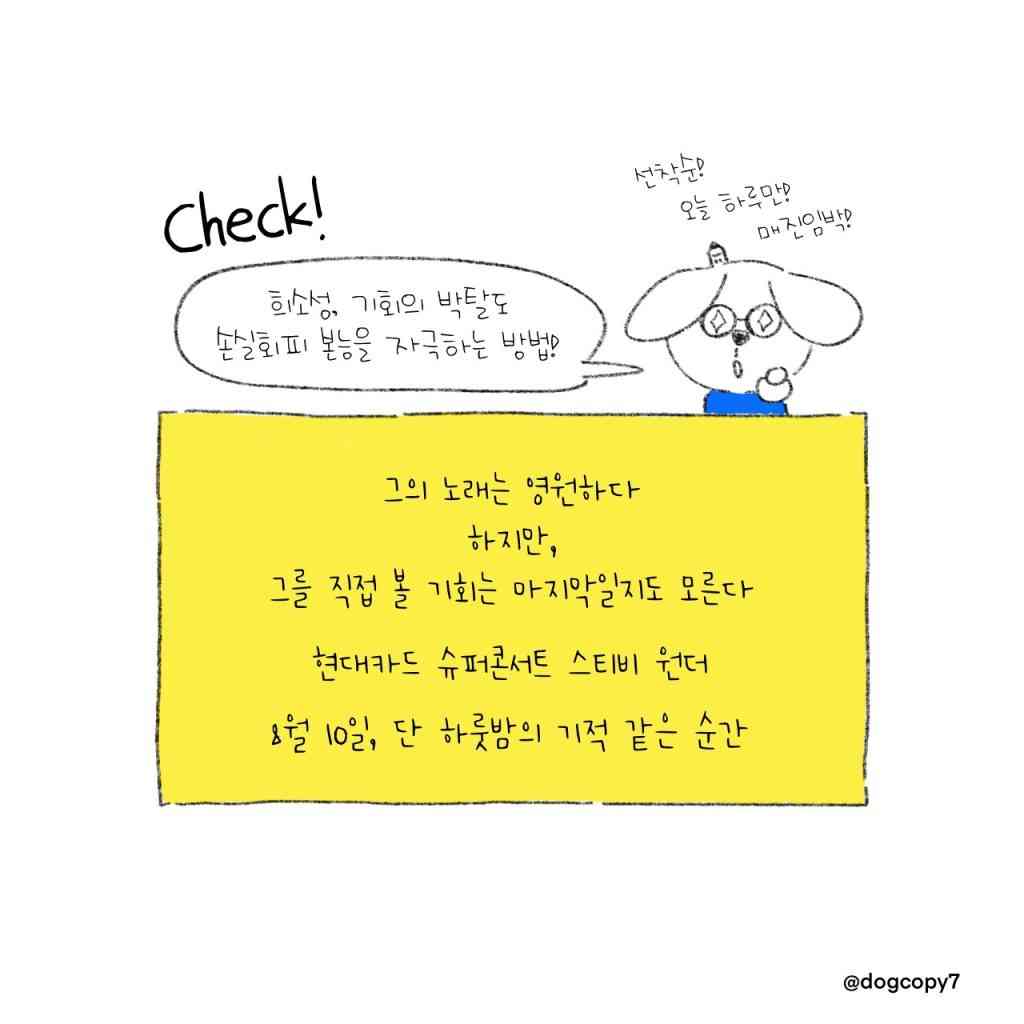 Check!
선착순!
오늘 하루만!
매진임박!
희소성, 기회의 박탈도
손실회피 본능을 자극하는 방법!
그의 노래는 영원하다
하지만,
그를 직접 볼 기회는 마지막일지도 모른다
현대카드 슈퍼콘서트 스티비 원더
8월 10일, 단 하룻밤의 기적 같은 순간
@dogcopy7